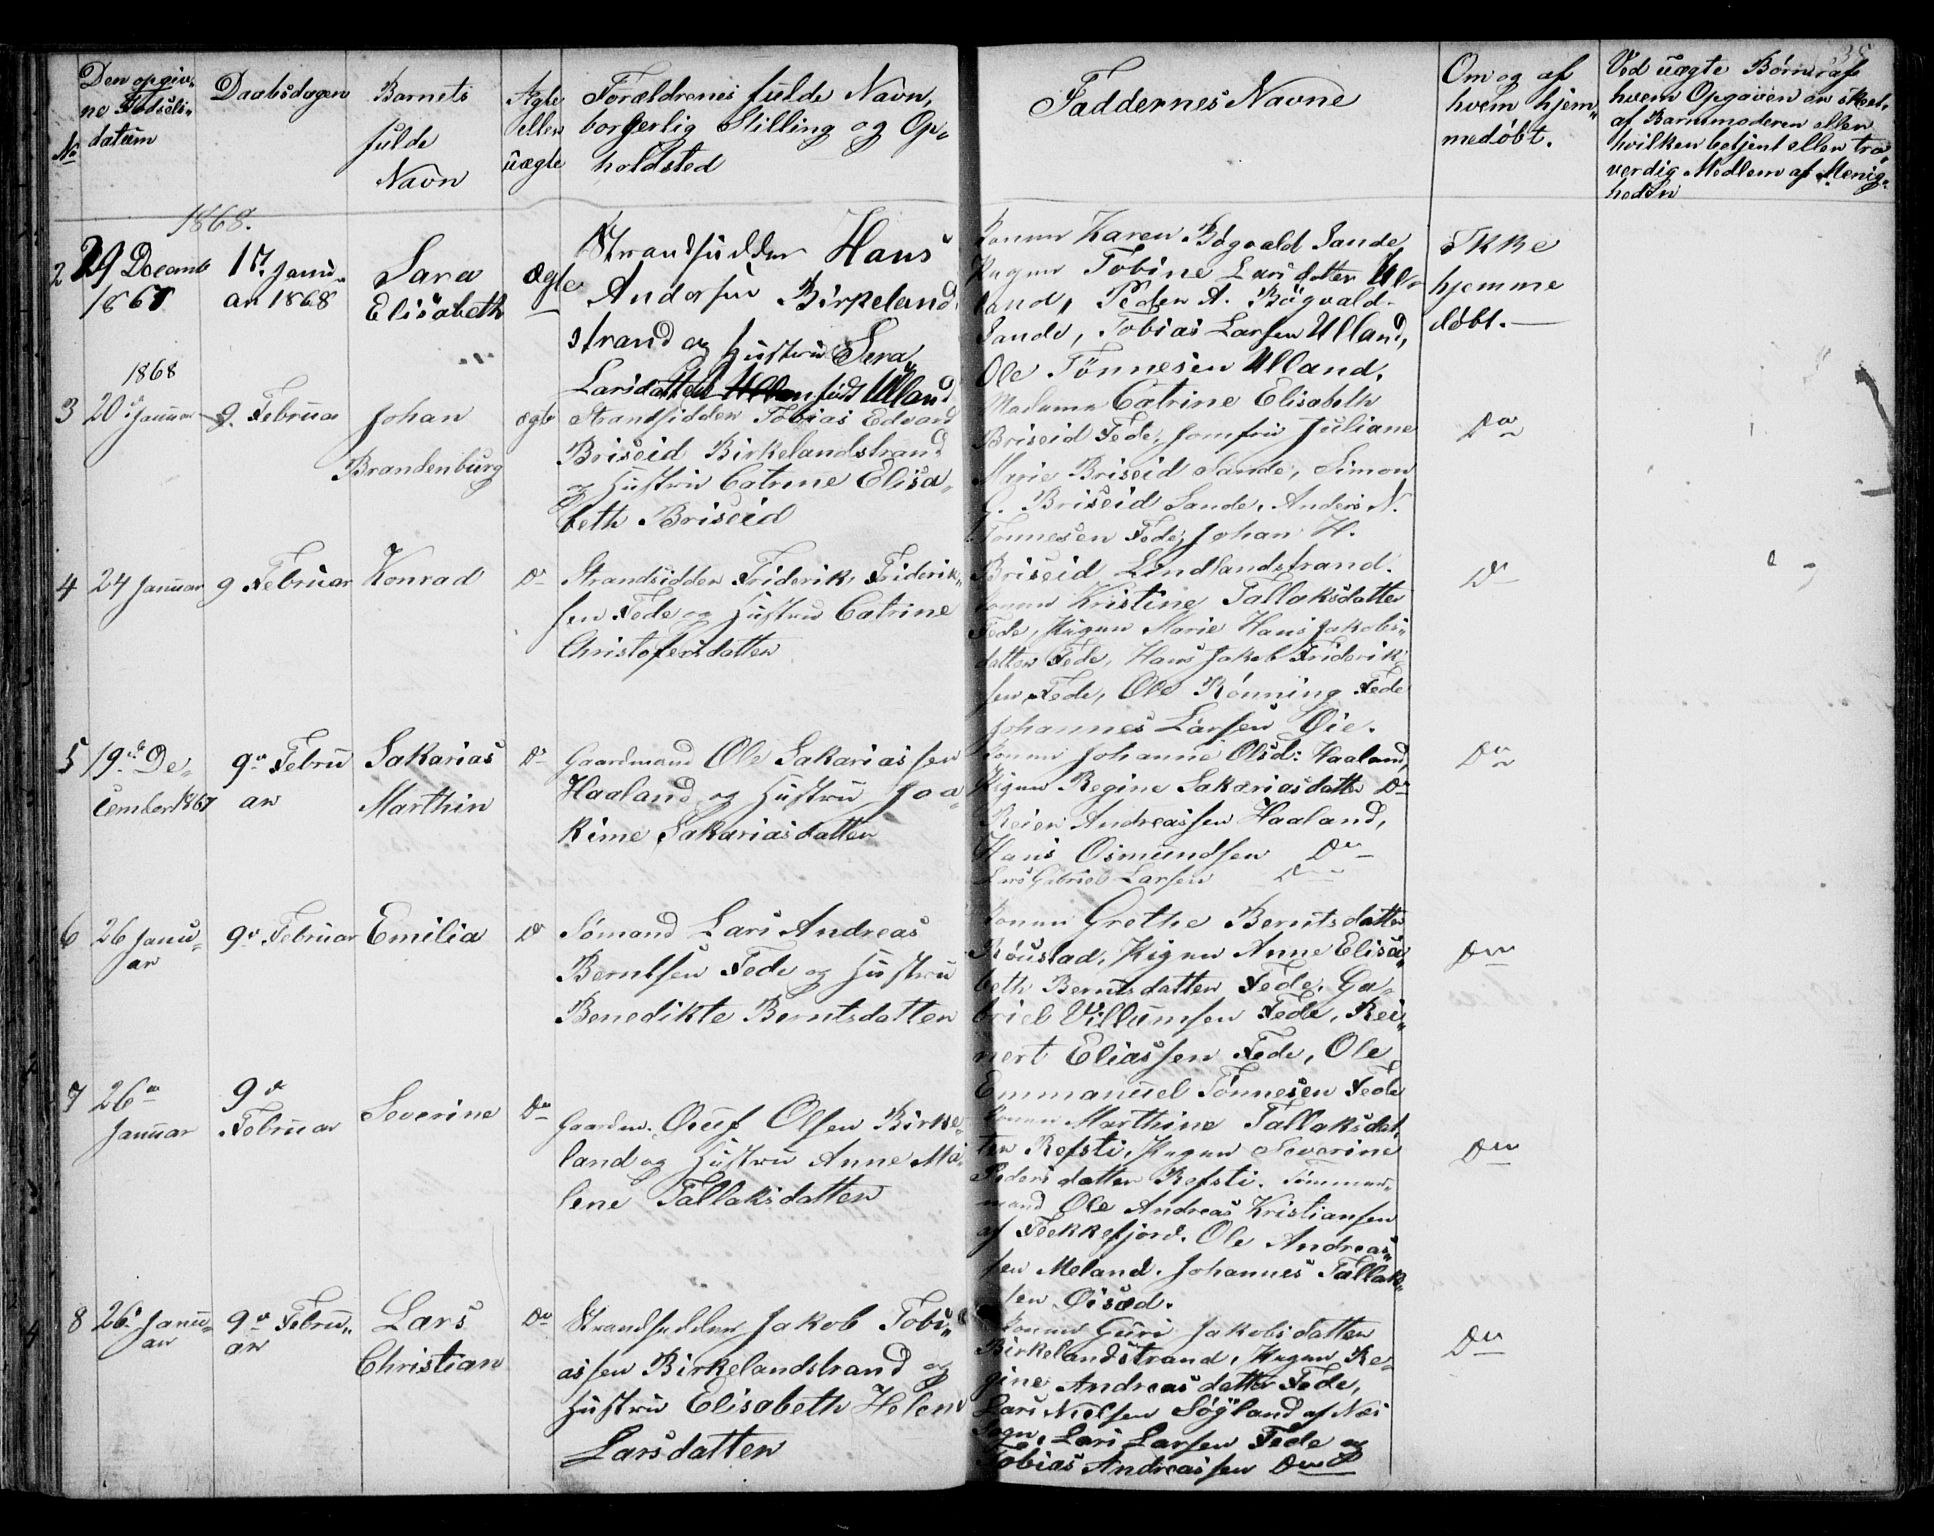 38
No
Den opgiv-
ne Fødsels-
datum
Daabsdagen
Barnets
fulde
Navn
Ægte
eller
uægte
Forældrenes fulde Navn,
borgerlig Stilling og Op-
holdsted
Faddernes Navne
Om og af
hvem hjem-
medøbt.
Ved uægte Børn af
hvem Opgaven er skeet,
af Barnmoderen eller
hvilken betjent eller tro-
verdig Medlem af Menig-
heden
1868.
2
29 Decemb
1867
17. Janu-
ar 1868
Sara
Elisabeth
ægte
Strandsidder Hans
Andersen Birkeland-
strand og Hustru Sera
Larsdatter født Ulland
Konen Karen Bøgvald Sande,
Pigen Tobine Larsdatter Ul-
land, Peder A. Bøgvald
Sande, Tobias Larsen Ulland,
Ole Tønnesen Ulland.
Ikke
hjemme
døbt.
1868
3
20de Januar
9. Februar
Johan
Brandenburg
ægte
Strandsidder Tobias Edvard
Briseid Birkelandstrand
og Hustru Catrine Elisa-
beth Briseid
Madame Catrine Elisabeth
Briseid Fede, Jomfru Juliane
Marie Briseid Sande, Simon
G. Briseid Sande, Anders N.
Tønnesen Fede, Johan H.
Briseid Lindlandstrand.
Do
4
24 Januar
9 Februar
Konrad
Do
Strandsidder Friderik Friderik-
sen Fede og Hustru Catrine
Christofersdatter
Konen Kristine Tallaksdatter
Fede, Pigen Marie Hans Jakobs-
datter Fede, Hans Jakob Friderik-
sen Fede, Ole Rønning Fede
Johannes Larsen Øie.
Do
5
19de De-
cember 1867
9de Febru
ar
Sakarias
Marthin
Do
Gaardmand Ole Sakariassen
Haaland og Hustru Joa-
kime Sakariasdatter
Konen Johanne Olsd: Haaland,
Pigen Regine Sakariasdatter Do
Reier Andreassen Haaland,
Hans Osmundsen Do
Lars Gabriel Larsen Do
Do
6
26 Janu-
ar
9de Februar
Emilia
Do
Sømand Lars Andreas
Berntsen Fede og Hustru
Benedikte Berntsdatter
Konen Grethe Berntsdatter
Røustad, Pigen Anne Elisa-
beth Berntsdatter Fede, Ga-
briel Villumsen Fede, Rei-
nert Eliassen Fede, Ole
Emmanuel Tønnesen Fede
Do
7
26de
Januar
9de
Februar
Severine
Do
Gaardm. Omuf Olsen Birke-
land og Hustru Anne Ma-
lene Tallaksdatter
Konen Marthine Tallaksdat-
ter Refsti, Pigen Severine
Pedersdatter Refsti. Tømmer-
mand Ole Andreas Kristiansen
af Flekkefjord. Ole Andreas-
sen Meland. Johannes Tallak-
sen Øisæd.
Do
8
26de Janu-
ar
9de Febru-
ar
Lars
Christian
Do
Strandsidder Jakob Tobi-
assen Birkelandstrand og
Hustru Elisabeth Helene
Larsdatter
Konen Guri Jakobsdatter
Birkelandstrand, Pigen Re-
gine Andreasdatter Fede,
Lars Nielsen Søyland af Næs
Sogn, Lars Larsen Fede og
Tobias Andreassen Do
Do